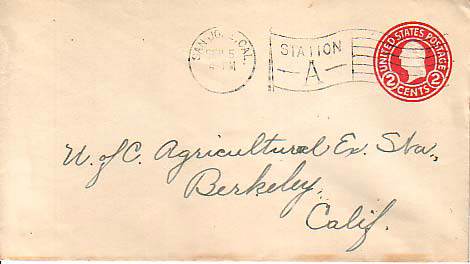 SAN JOSE, CAL.
STATION
A
UNITED STATES POSTAGE
2 CENTS 2
U. of C. Agricultural Ex. Sta.,
Berkeley,
Calif.